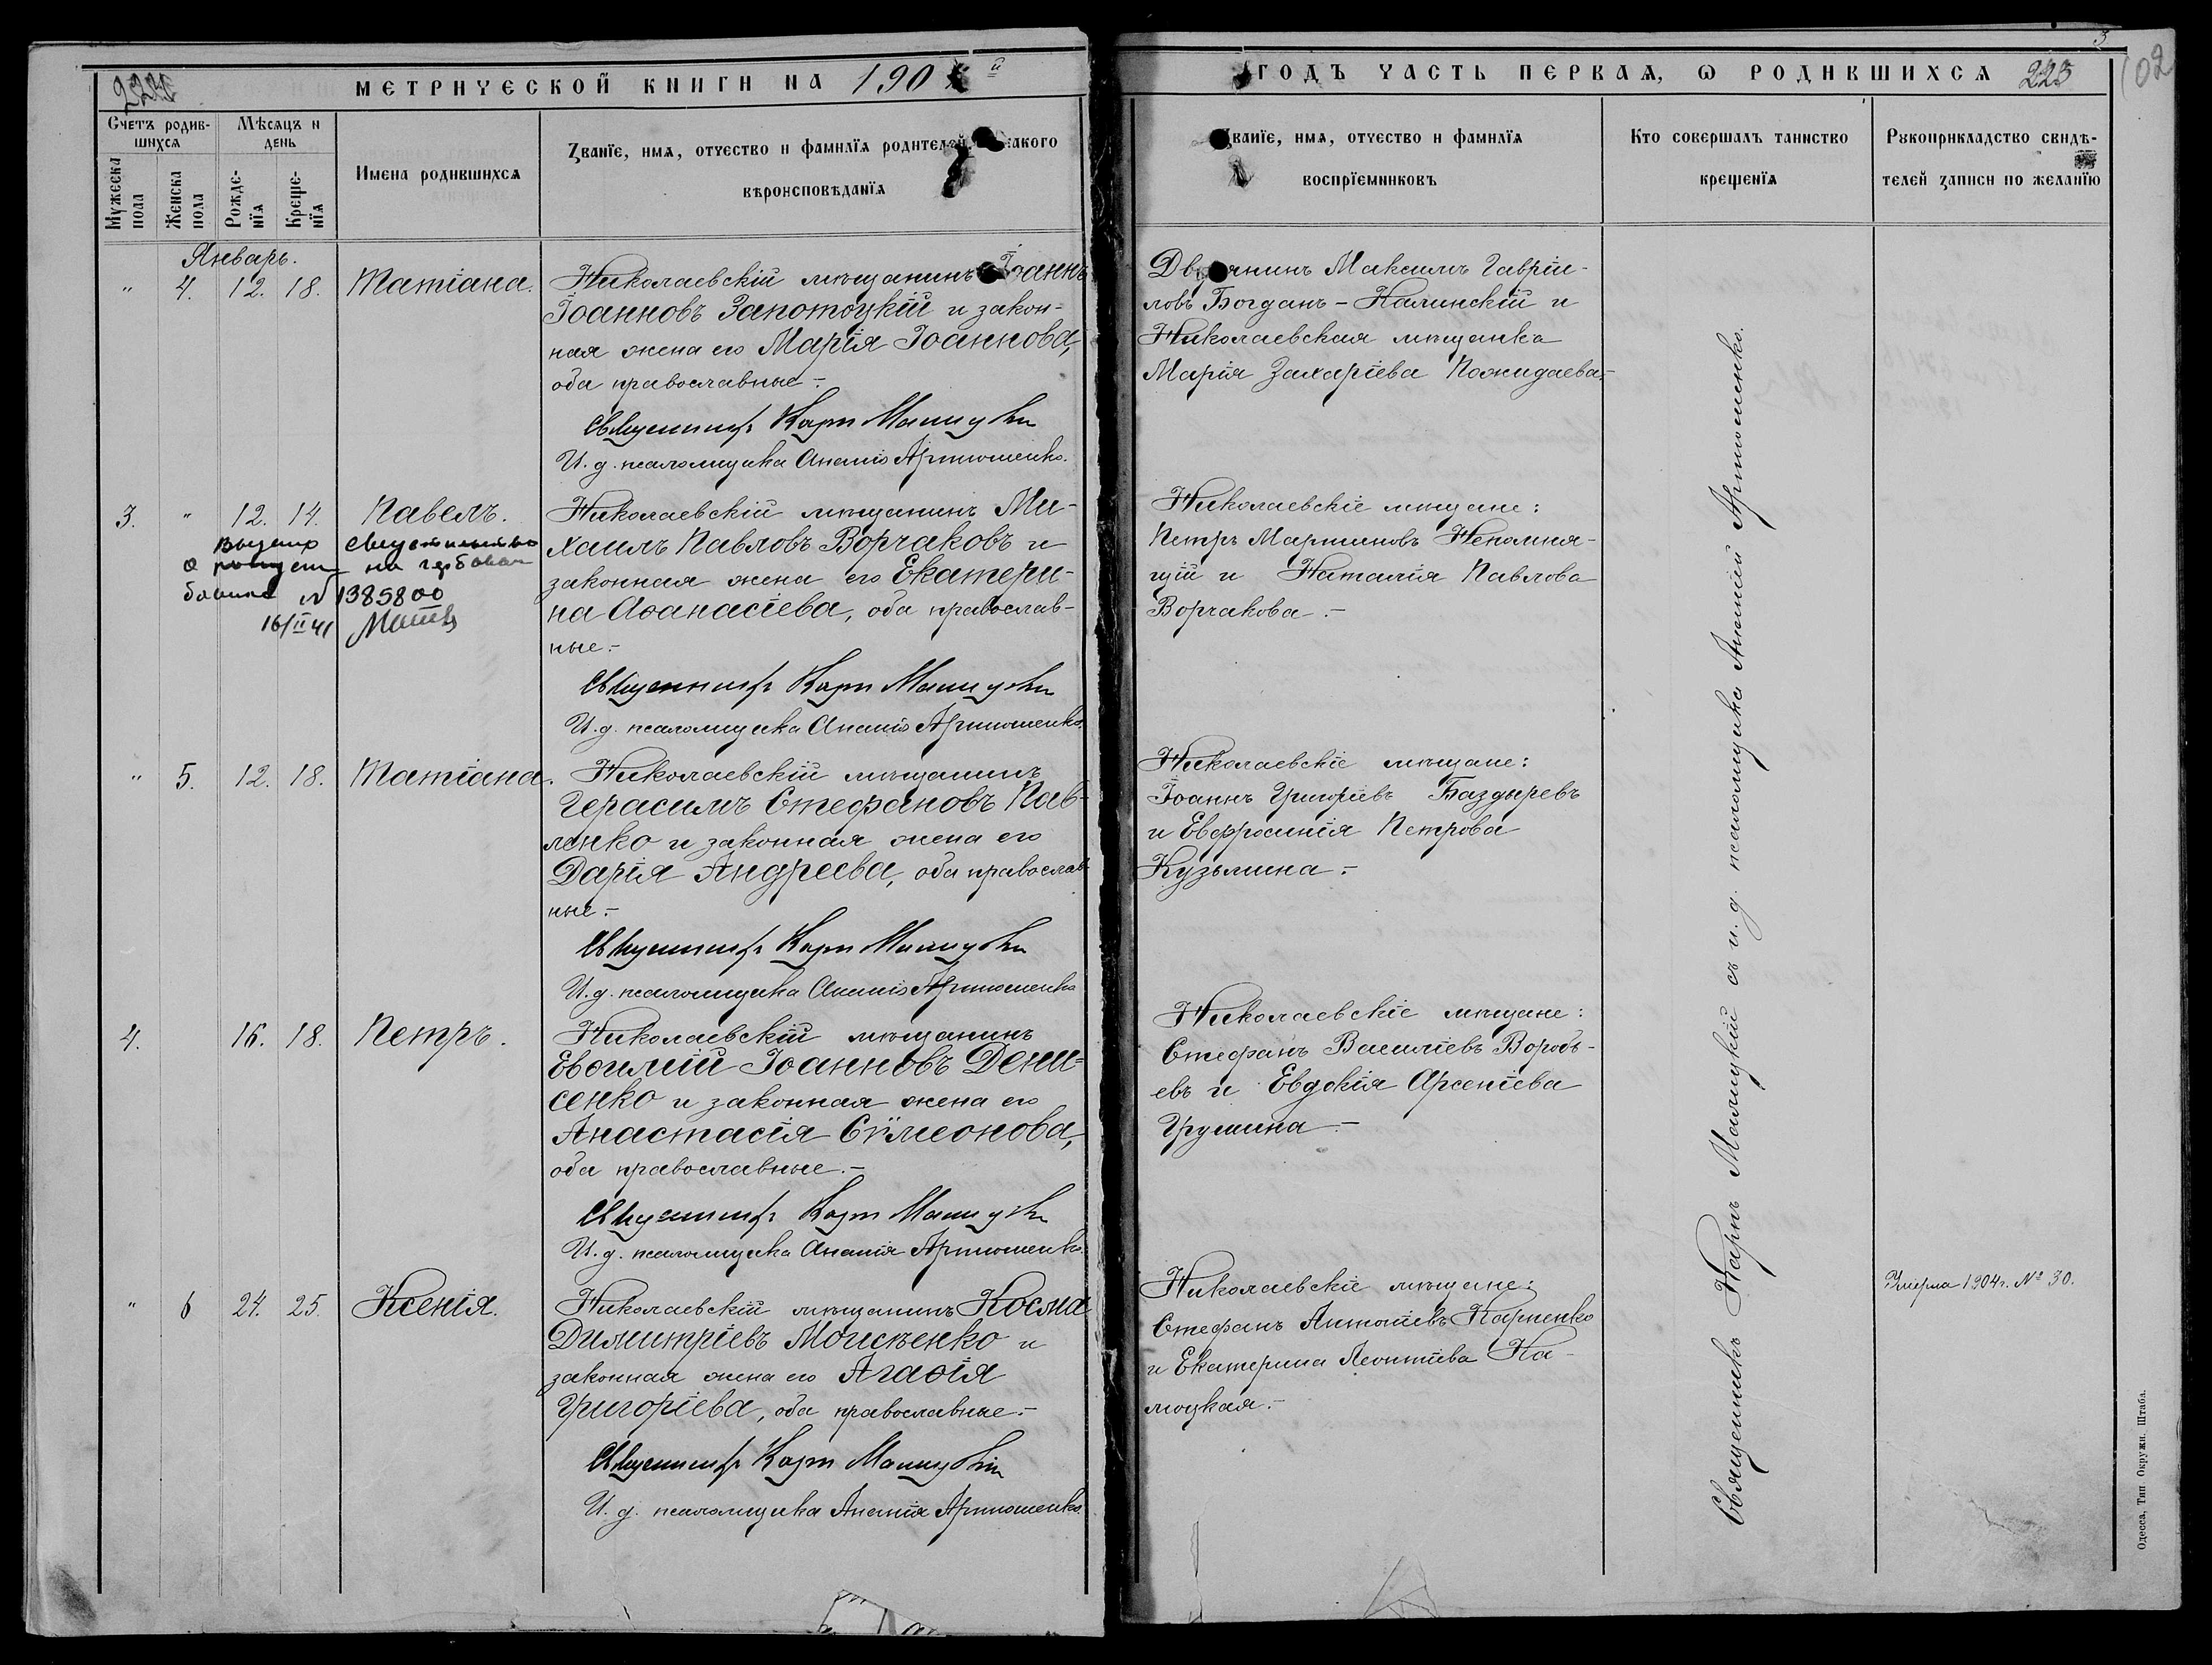 МЕТРИЧЕСКОЙ КНИГИ НА 190 й
ГОДЪ ЧАСТЬ ПЕРВАЯ, Ѡ РОДИВШИХСЯ 223
102
3
Счетъ родив-
шихся
Мѣсяцъ и
день
Мужеска пола
Женска пола
Рожде-
нїя
Креще-
нїя
Имена родившихся
Званїе, имя, отчество и фамилїя родителей, какого
вѣроисповѣданїя
Званїе, имя, отчество и фамилїя
воспрїемниковъ
Кто совершалъ таинство
крещенїя
Рукоприкладство свидѣ-
телей записи по желанїю
Январь.
" 4. 12. 18. Татіана.
Николаевскій мѣщанинъ Іоаннъ
Іоанновъ Запотоцкій и закон-
ная жена его Марія Іоаннова,
оба православные.-
Священникъ Карпъ
И. д. псаломщика Ананія Артюшенко.
Дворянинъ Максимъ Гавріи-
ловъ Богданъ-Калинскій и
Николаевская мѣщанка
Марія Захаріева Пожидаева.-
3. " 12. 14. Павелъ.
Выдано свидетельство
о рожден на гербовом
бланке N 1385800
16/II 41
Николаевскій мѣщанинъ Ми-
хаилъ Павловъ Ворчаковъ и
законная жена его Екатери-
на Аѳанасіева, оба православ-
ные.-
Священникъ Карпъ
И. д. псаломщика Ананія Артюшенко.
Николаевскіе мѣщане:
Петръ Мартиновъ Непомня-
щій и Наталія Павлова
Ворчакова.-
" 5. 12. 18. Татіана.
Николаевскій мѣщанинъ
Герасимъ Стефановъ Пав-
ленко и законная жена его
Дарія Андреева, оба православ-
ные.-
Священникъ Карпъ
И. д. псаломщика Ананія Артюшенко
Николаевскіе мѣщане:
Іоаннъ Григоріевъ Баздыревъ
и Евфросинія Петрова
Кузьмина.-
4. 16. 18. Петръ.
Николаевскій мѣщанинъ
Евѳимій Іоанновъ Дени-
сенко и законная жена его
Анастасія Сѵмеонова,
оба православные.-
Священникъ Карпъ
И. д. псаломщика Ананія Артюшенко.
Николаевскіе мѣщане:
Стефанъ Василіевъ Воробь-
евъ и Евдокія Арсеніева
Грушина.-
" 6 24. 25. Ксенія.
Николаевскій мѣщанинъ Косма
Димитріевъ Моисѣенко и
законная жена его Агаѳія
Григоріева, оба православные.-
Священникъ Карпъ
И. д. псаломщика Ананія Артюшенко.
Николаевскіе мѣщане:
Стефанъ Антоніевъ Карпенко
и Екатерина Леонтіева
Умерла 1904 г. № 30.
Священникъ Карпъ съ и. д. псаломщика Ананіей Артюшенко.
Одесса, Тип. Окружн. Штаба.